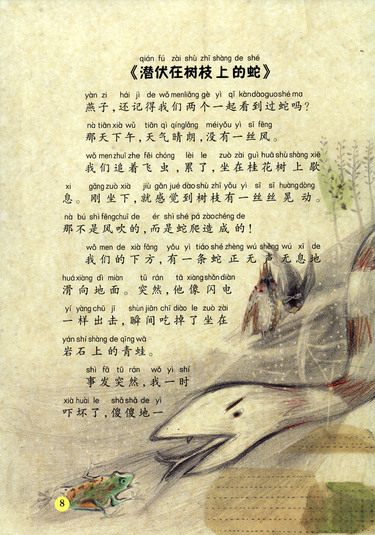 qián fú zài shù zhī shàng de shé
《潜伏在树枝上的蛇》
yàn zi hái jì de wǒ menliǎng gè yì qǐ kàndàoguoshé ma
燕子，还记得我们两个一起看到过蛇吗？
nà tiānxià wǔ tiān qì qínglǎng méiyǒu yì sī fēng
那天下午，天气晴朗，没有一丝风。
wǒ menzhuī zhe fēi chóng lèi le zuò zài guì huā shù shàng xiē
我们追着飞虫，累了，坐在桂花树上歇
xi gāng zuò xià jiù gǎn jué dào shù zhī yǒu yì sī sī huàng dòng
息。刚坐下，就感觉到树枝有一丝丝晃动。
nà bú shì fēngchuī de ér shì shé pá zàochéng de
那不是风吹的，而是蛇爬造成的！
wǒ men de xià fāng yǒu yì tiáo shé zhèng wú shēng wú xī de
我们的下方，有一条蛇正无声无息地
huáxiàng dì miàn tū rán tā xiàngshǎn diàn
滑向地面。突然，他像闪电
yí yàng chū jī shùn jiān chī diào le zuò zài
一样出击，瞬间吃掉了坐在
yán shí shàng de qīng wā
岩石上的青蛙。
shì fā tū rán wǒ yì shí
事发突然，我一时
xià huài le shǎ shǎ de yì
吓坏了，傻傻地一
8